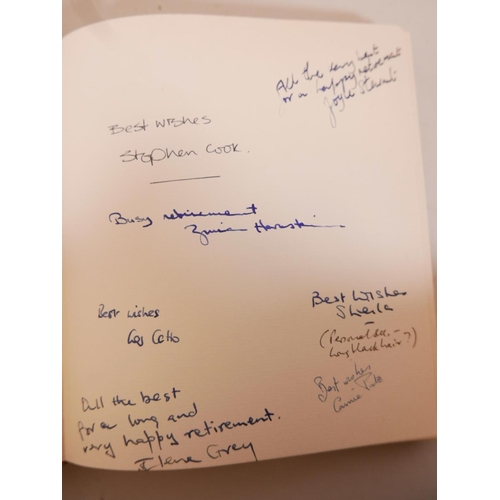 All the very best
for a happy retirement
Joyce
Best Wishes
Stephen Cook.
Busy retirement
Best wishes
Best Wishes
Sheila
(Personal Sec. –
Long black hair?)
Best wishes
All the best
for a long and
very happy retirement.
Ilena Grey